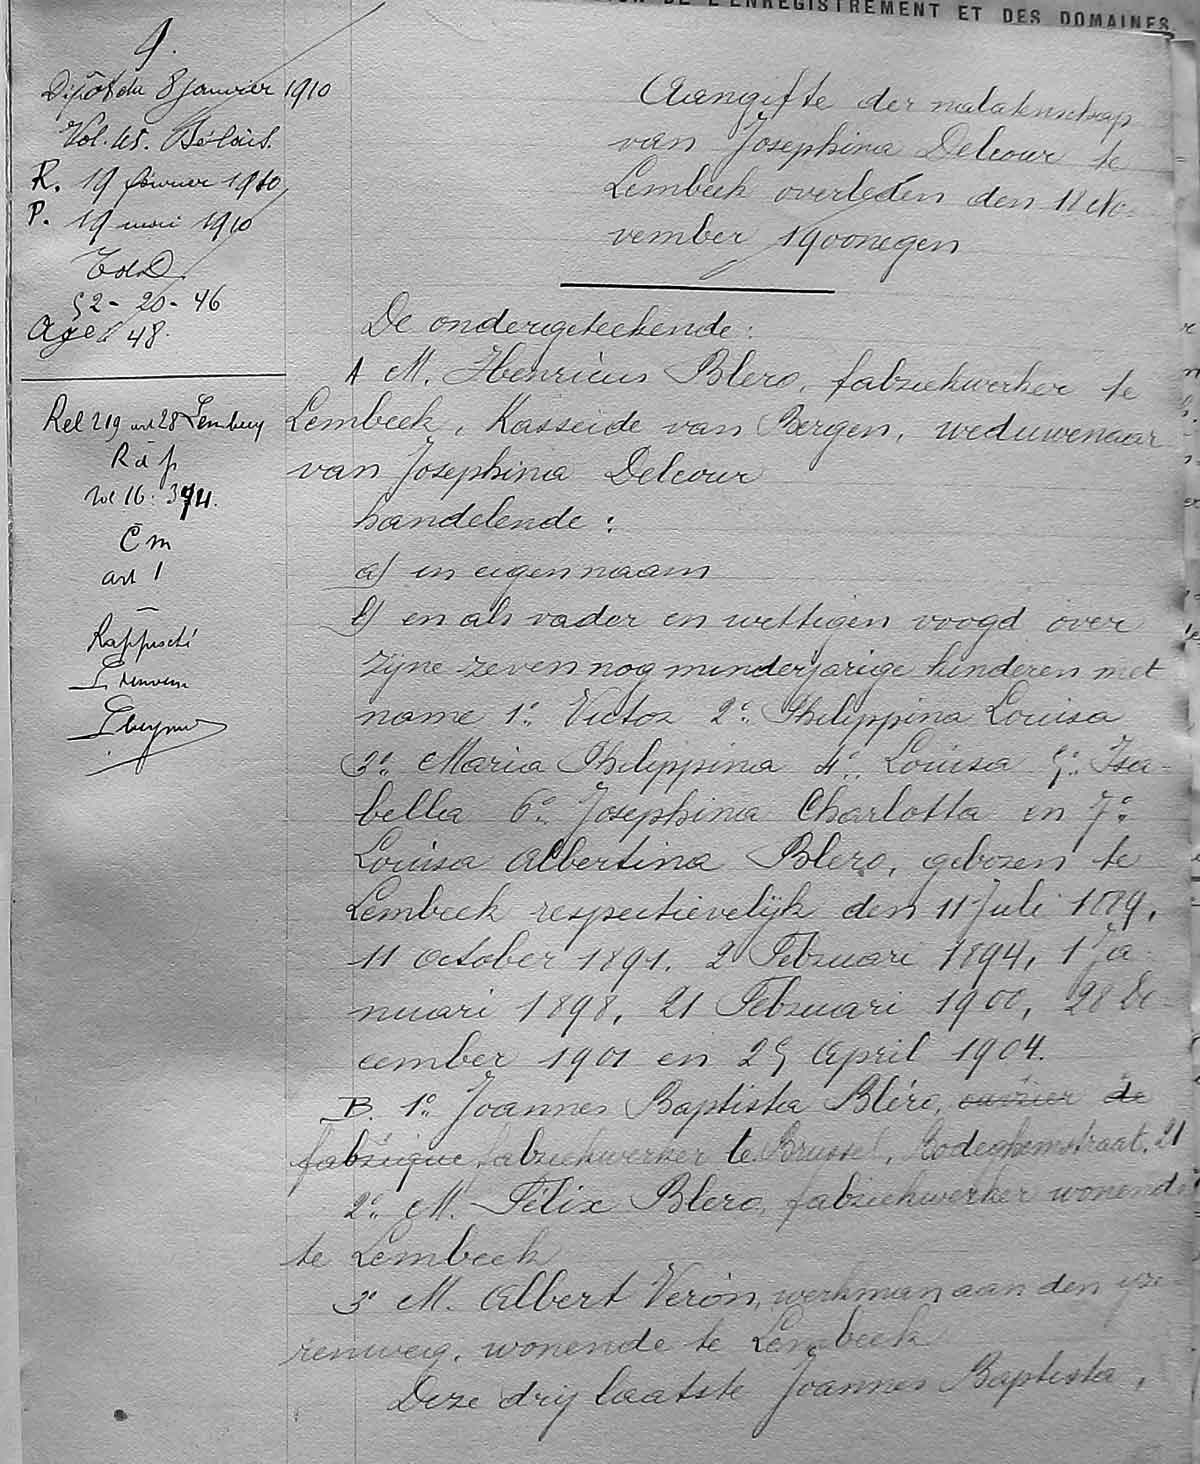 DE L'ENREGISTREMENT ET DES DOMAINES
9.
Dépôt du 8 janvier 1910
Vol. 45.
R. 19 février 1910
P. 19 mai 1910
52 - 20 - 46
Age 48.
Aangifte der nalatenschap
van Josephina Delcour te
Lembeek overleden den 11 No-
vember 1900negen
De ondergeteekende:
A M. Henricus Blero, fabriekwerker te
Lembeek, Kasseide van Bergen, weduwenaar
van Josephina Delcour
handelende:
a) in eigen naam
b) en als vader en wettigen voogd over
zijne zeven nog minderjarige kinderen met
name 1° Victor 2° Philippina Louisa
3° Maria Philippina 4° Louisa 5° Isa-
bella 6° Josephina Charlotta en 7°
Louisa Albertina Blero, geboren te
Lembeek respectievelijk den 11 Juli
11 October 1891. 2 Februari 1894, 1 Ja-
nuari 1898, 21 Februari 1900, 28 De-
cember 1901 en 25 April 1904.
B. 1° Joannes Baptista Bléro, ouvrier de
fabrique fabriekwerker te Brussel, Rodeghemstraat, 21
2° M. Félix Blero, fabriekwerker wonende
te Lembeek
3° M. Albert Veron, werkman aan den yze-
renweg, wonende te Lembeek
Deze drij laatste Joannes Baptista,
Rel 219 art 28
R à p
vol 16: 374.
Cm
art 1